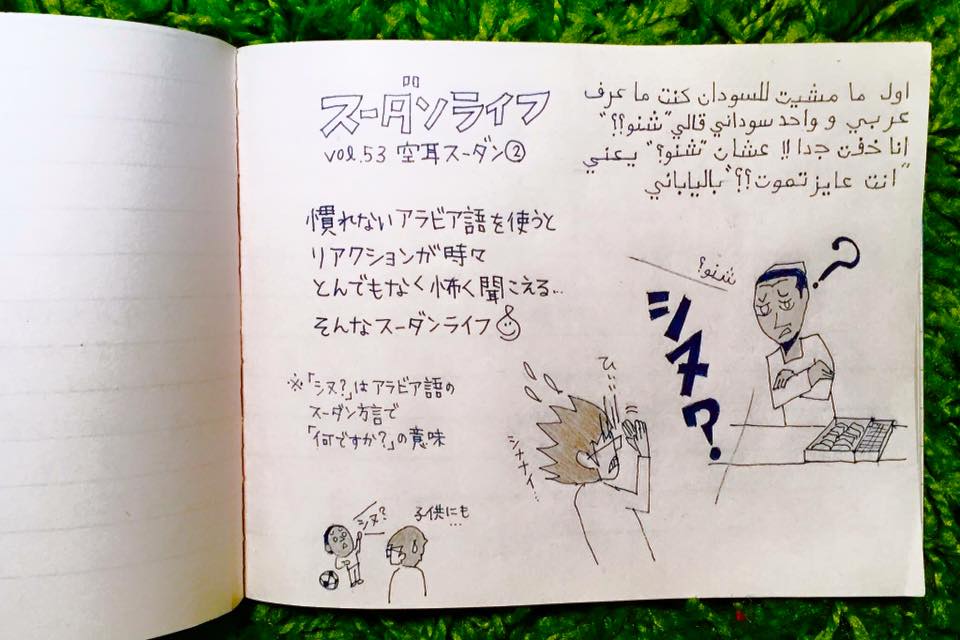 スーダンライフ
vol.53 空耳スーダン②
اول ما مشيت للسودان كنت ما عرف
عربي و واحد سوداني قالي "شنو؟؟"
انا خفت جدا!! عشان "شنو؟" يعني
"انت عايز تموت؟؟" بالياباني
慣れないアラビア語を使うと
リアクションが時々
とんでもなく怖く聞こえる…
そんなスーダンライフ
※「シヌ?」はアラビア語の
スーダン方言で
「何ですか?」の意味
شنو؟
?
シヌ?
ひぃぃ
シナナイ…
シヌ?
子供にも…